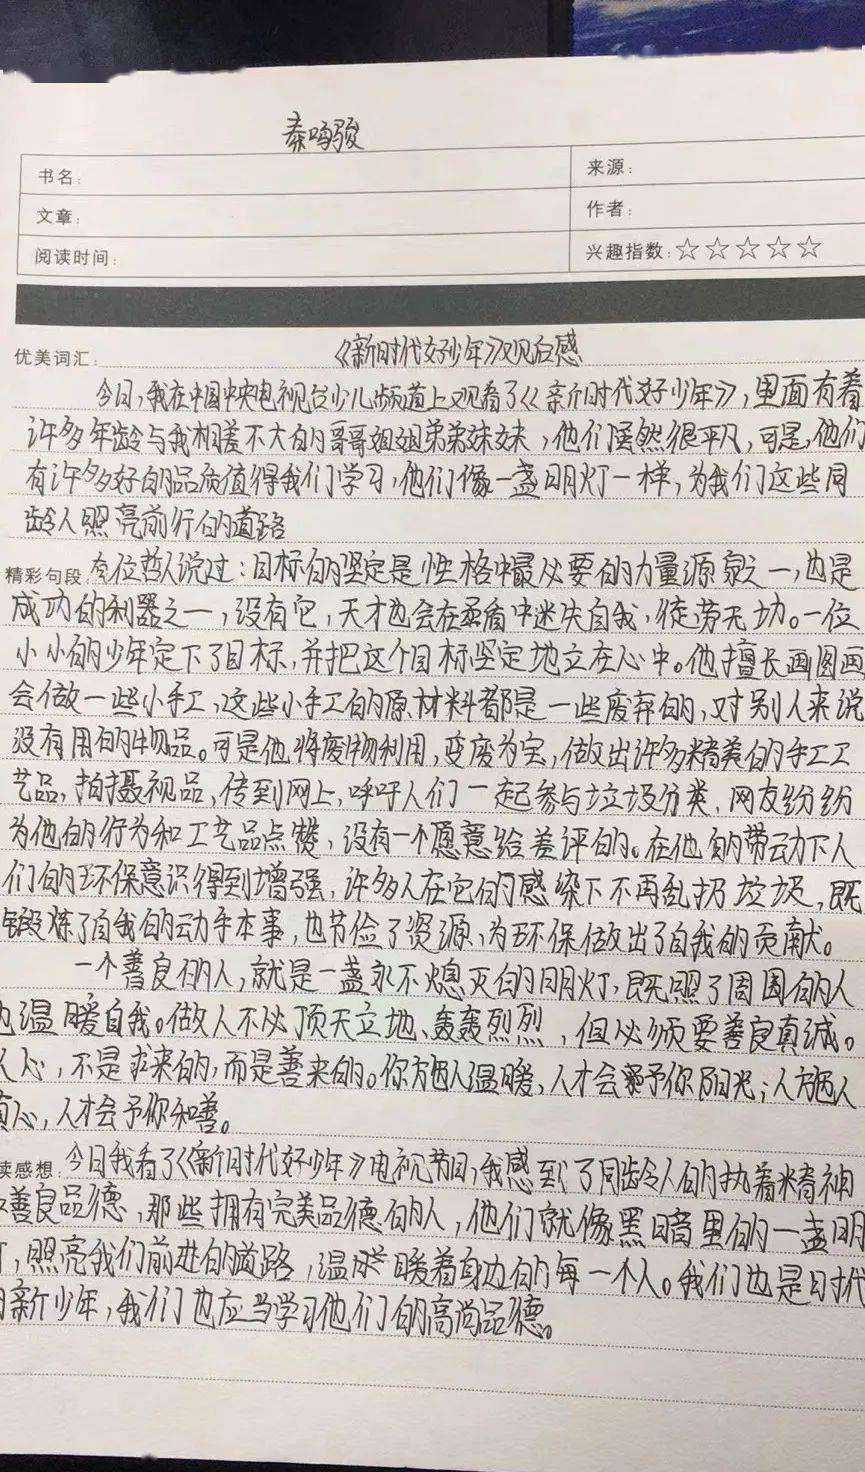 秦鸣骏
书名：
来源：
文章：
作者：
阅读时间：
兴趣指数：☆☆☆☆☆
优美词汇：
《新时代好少年》观后感
今日，我在中国中央电视台少儿频道上观看了《新时代好少年》，里面有着
许多年龄与我相差不大的哥哥姐姐弟弟妹妹，他们虽然很平凡，可是，他们
有许多好的品质值得我们学习，他们像一盏明灯一样，为我们这些同
龄人照亮前行的道路
精彩句段：
位哲人说过：目标的坚定是性格中最必要的力量源泉之一，也是
成功的利器之一，没有它，天才也会在矛盾中迷失自我，徒劳无功。一位
小小的少年定下了目标，并把这个目标坚定地立在心中。他擅长画图画
会做一些小手工，这些小手工的原材料都是一些废弃的，对别人来说
没有用的物品。可是他将废物利用，变废为宝，做出许多精美的手工工
艺品，拍摄视品，传到网上，呼吁人们一起参与垃圾分类，网友纷纷
为他的行为和工艺品点赞，没有一个愿意给差评的。在他的带动下人
们的环保意识得到增强，许多人在它的感染下不再乱扔垃圾，既
锻炼了自我的动手本事，也节俭了资源，为环保做出了自我的贡献。
一个善良的人，就是一盏永不熄灭的明灯，既照了周围的人
也温暖自我。做人不必顶天立地、轰轰烈烈，但必须要善良真诚。
人心，不是求来的，而是善来的。你施人温暖，人才会予你阳光；人施人
真心，人才会予你和善。
读感想：
今日我看了《新时代好少年》电视节目，我感到了同龄人的执着精神
善良品德，那些拥有完美品德的人，他们就像黑暗里的一盏明
灯，照亮我们前进的道路，温暖着身边的每一个人。我们也是时代
的新少年，我们也应当学习他们的高尚品德。